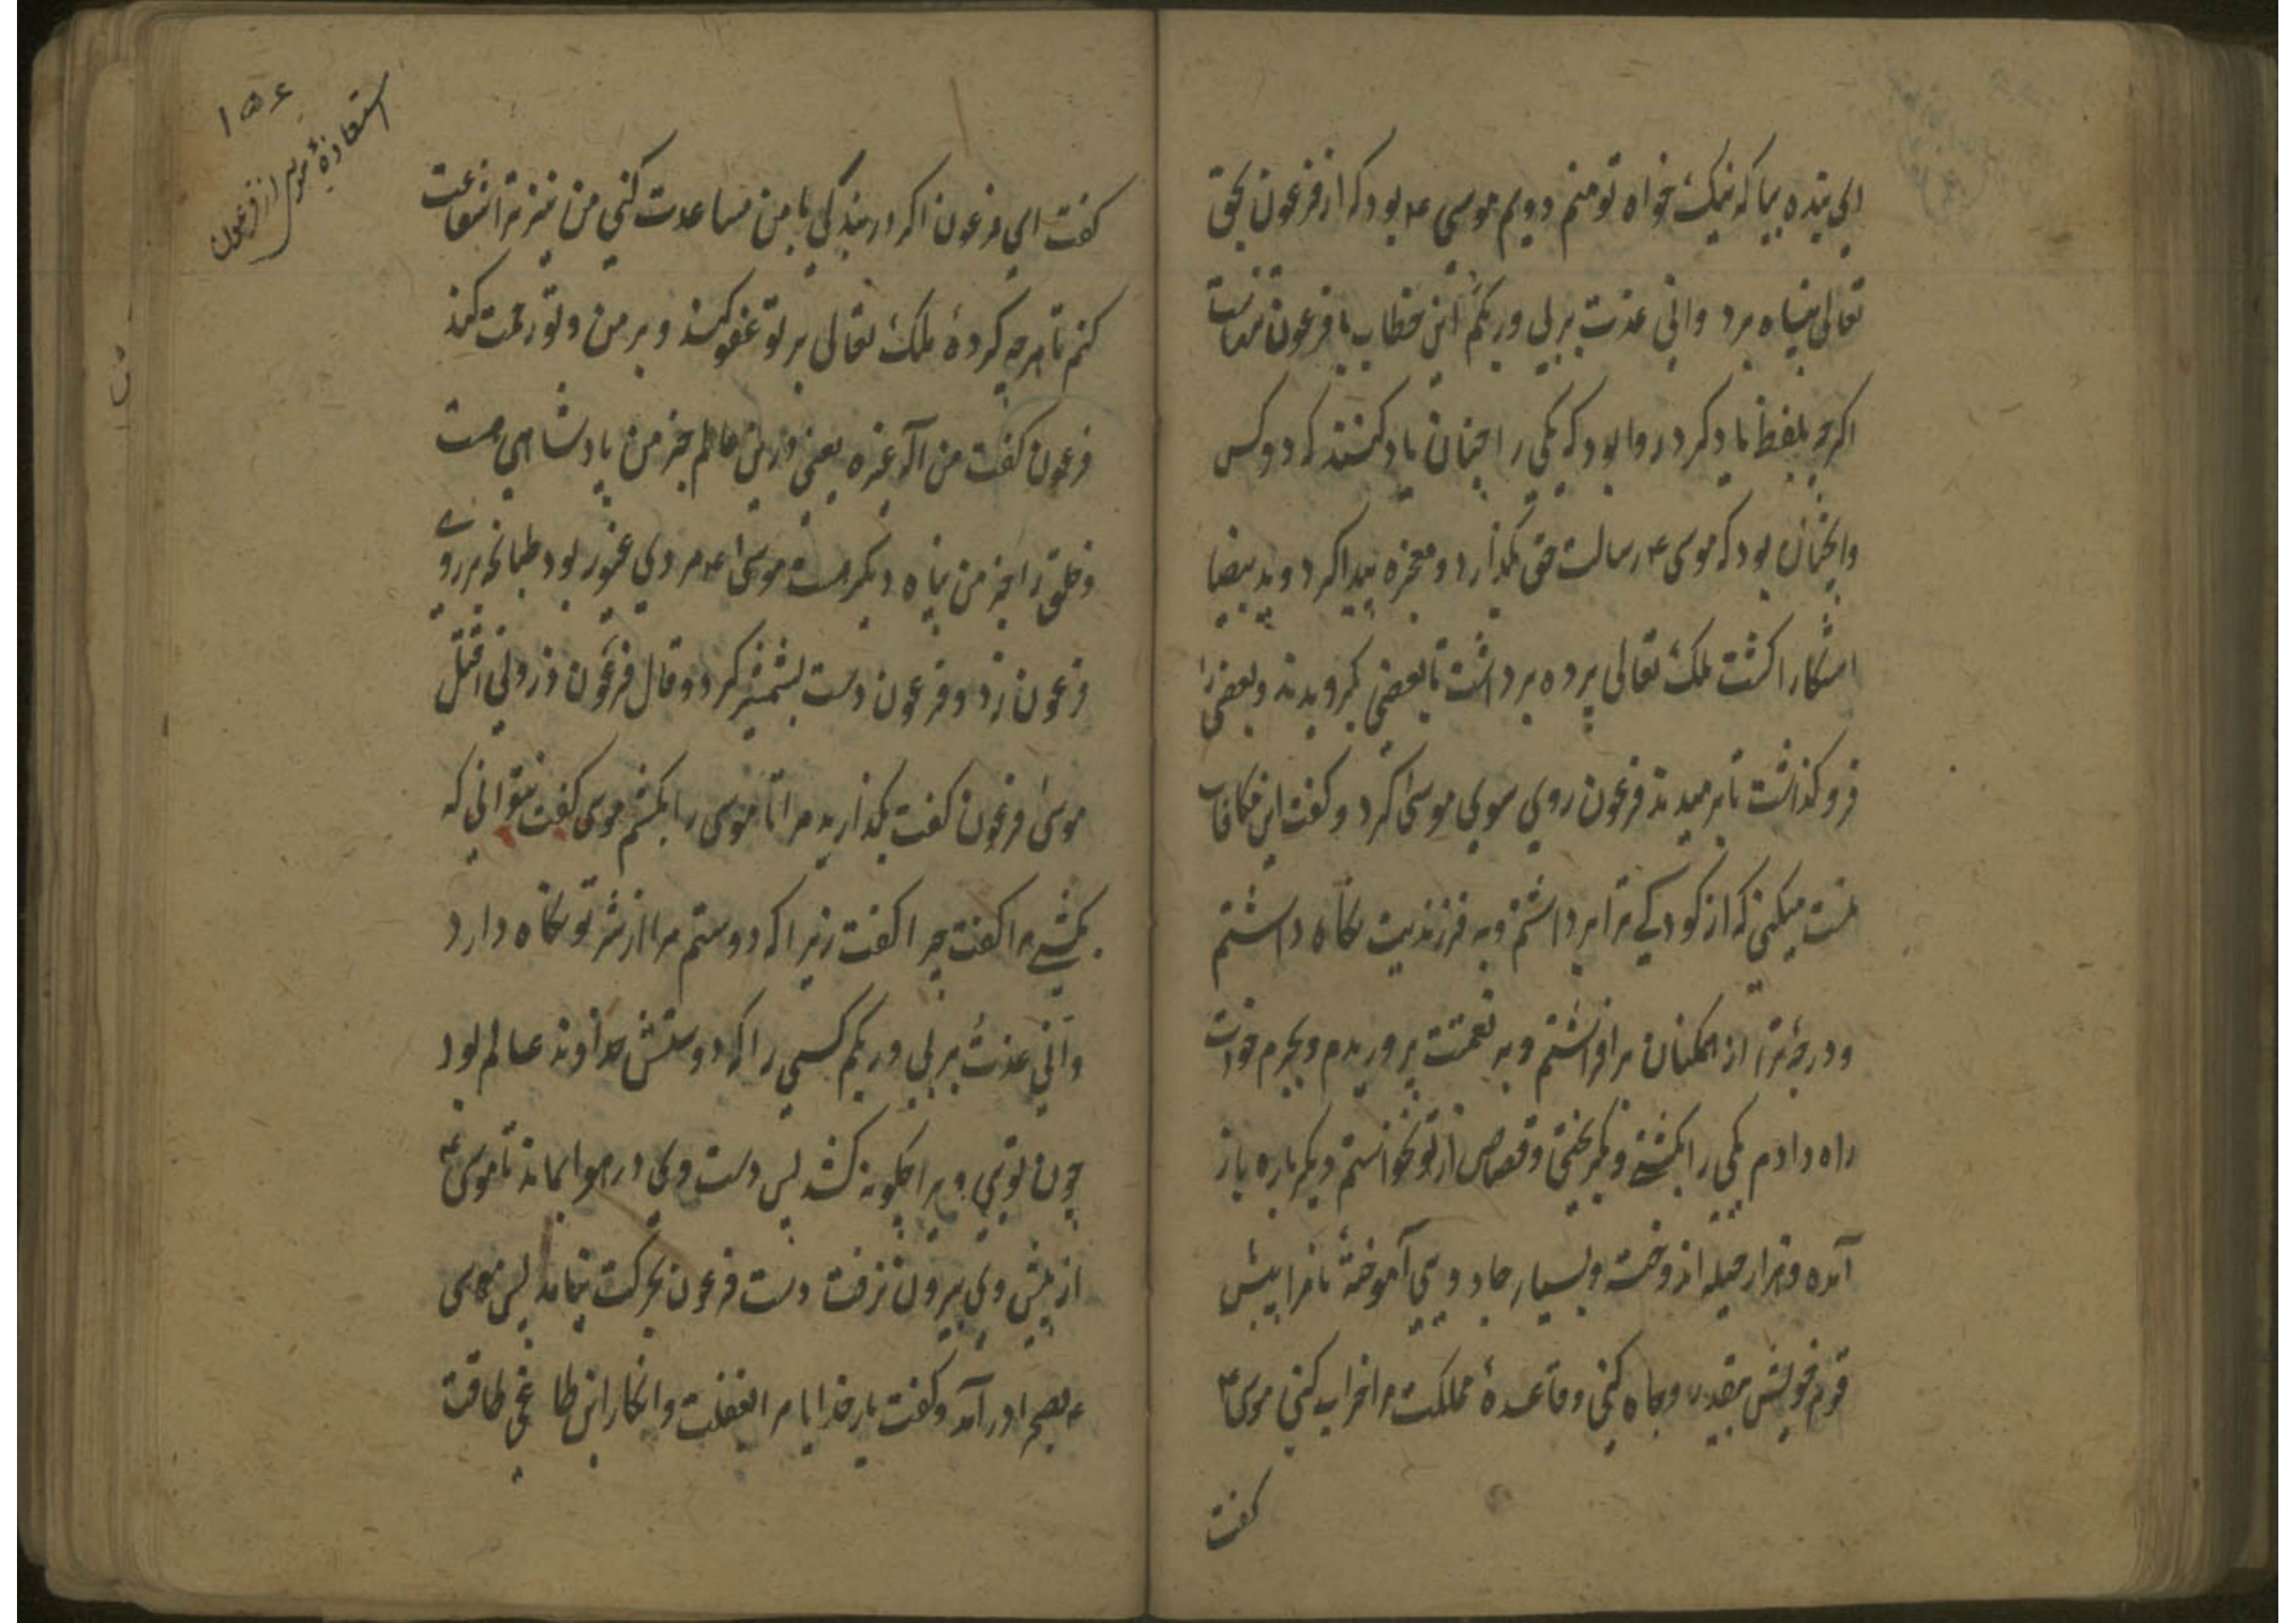 ای بنده بیا که نیک خواه تو منم دویم موسی ۴ بود که از فرعون بحق
تعالی پناه برد وانی عذت بربی وربکم این خطاب با فرعون
اکرچه بلفظ یاد کرد روا بود که یکی را چنان یاد کنند که دو کس
وانچنان بود که موسی ۴ رسالت حق بگذارد و معجزه پیدا کرد وید بیضا
اشکارا کشت ملک تعالی پرده برداشت تا بعضی بکرویدند وبعضی را
فروکذاشت تا برمیدند فرعون روی سوی موسی کرد و کفت این مکافات
منست میکنی که از کودکے ترا برداشتم وبه فرزندیت نکاه داشتم
ودرجهٔ ترا از همکنان برافراشتم وبه نعمتت پروریدم وبحرم خودت
راه دادم یکی را بکشتے وبکریختی وقصاص از تو نخواستم دیکرباره باز
آمدهٔ وهزار حیله اندوخته وبسیار جادویی آموختهٔ تا مرا پیش
قوم خویش بیقدر وجاه کنی وقاعدهٔ مملکت مرا خراب کنی موسی ۴
کفت
۱۵۶
استعاذهٔ موسی از فرعون
کفت ای فرعون اکر در بندکی با من مساعدت کنی من نیز ترا شفاعت
کنم تا هرچه کردهٔ ملک تعالی بر تو عفو کند وبر من وتو رحمت کند
فرعون کفت من اله غیره یعنی درین عالم جز من پادشاهی هست
وخلق را جز من پناه دیکر هست موسی ۴ مردی غیور بود طپانچه بر روے
فرعون زد وفرعون دست بشمشیر کرد وقال فرعون ذرونی اقتل
موسی فرعون کفت بکذارید مرا تا موسی را بکشم موسی کفت نتوانی که
بکشے مرا کفت چرا کفت زیرا که دوستم مرا از شر تو نکاه دارد
وانی عذت بربی وربکم کسی را که دوستش خداوند عالم بود
چون تویی ویرا چکونه کشد پس دست وی در هوا بماند تا موسی ۴
از پیش وی بیرون نرفت دست فرعون بحرکت نیامد پس موسی
۴ بصحرا درآمد وکفت بارخدایا مرا بغفلت وانکار این طاغی طاقت